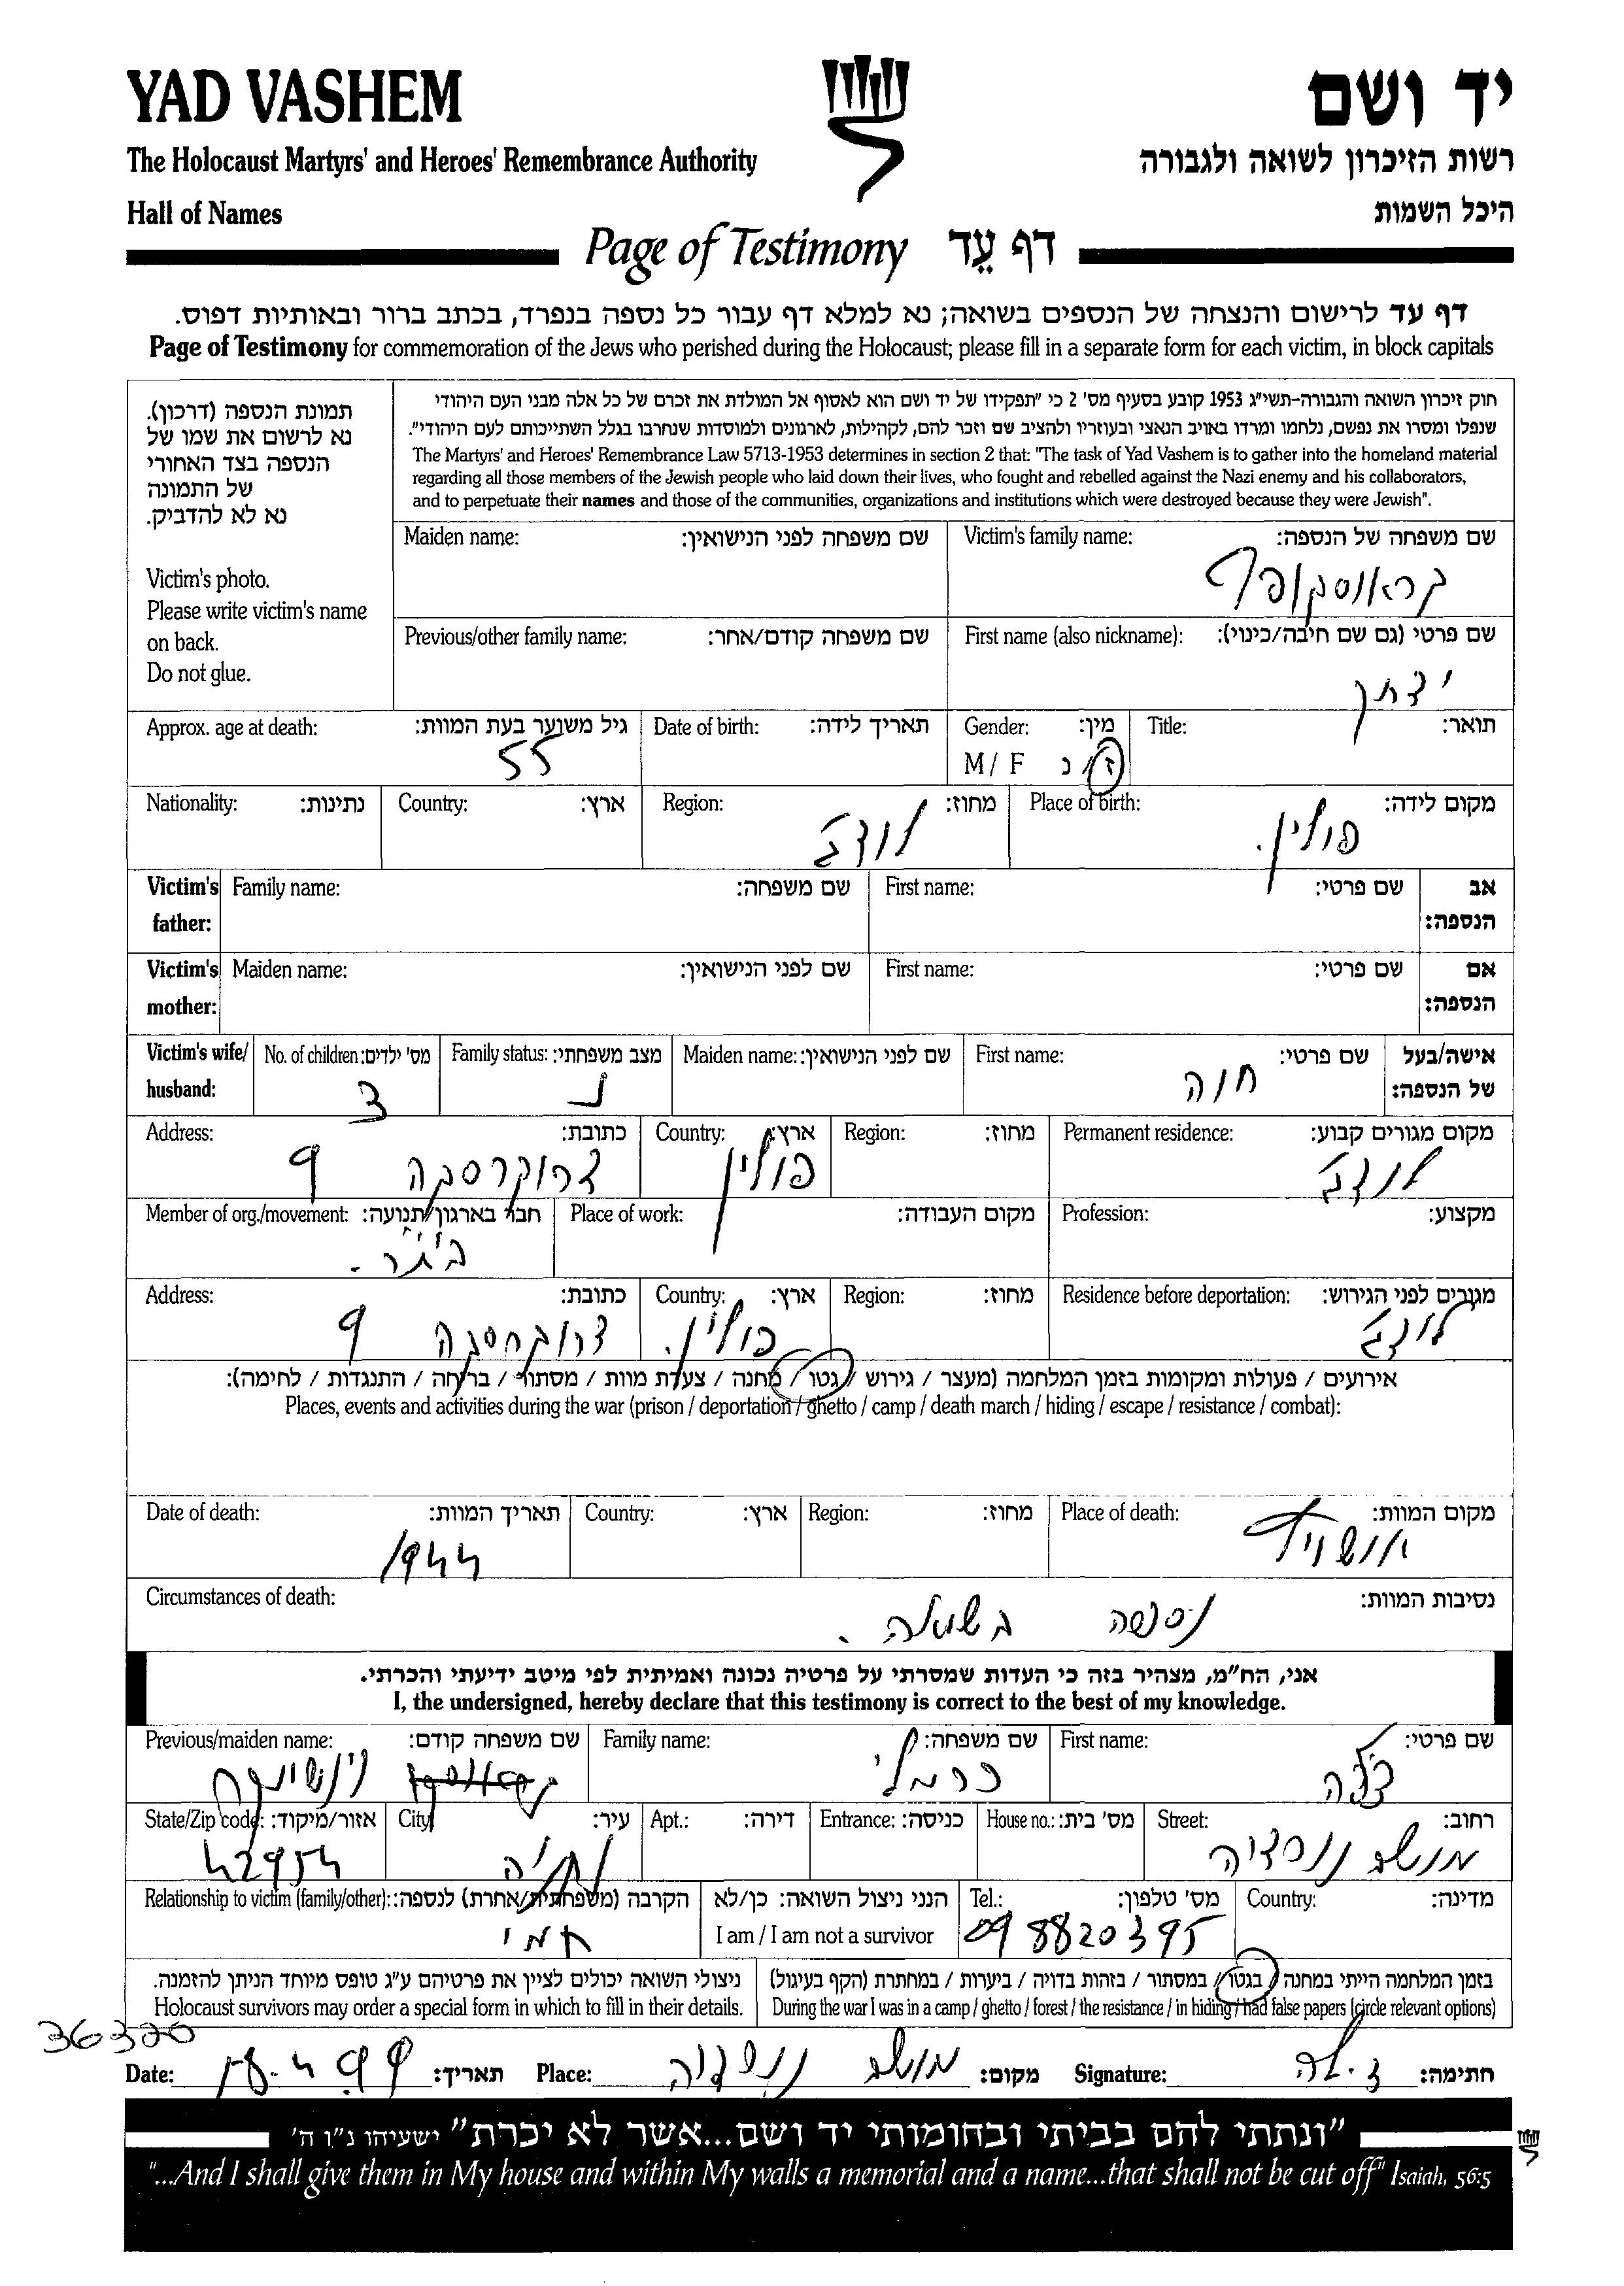 YAD VASHEM
יד ושם
The Holocaust Martyrs' and Heroes' Remembrance Authority
רשות הזיכרון לשואה ולגבורה
Hall of Names
היכל השמות
Page of Testimony דף עֵד
דף עד לרישום והנצחה של הנספים בשואה; נא למלא דף עבור כל נספה בנפרד, בכתב ברור ובאותיות דפוס.
Page of Testimony for commemoration of the Jews who perished during the Holocaust; please fill in a separate form for each victim, in block capitals
תמונת הנספה (דרכון).
נא לרשום את שמו של
הנספה בצד האחורי
של התמונה
נא לא להדביק.
Victim's photo.
Please write victim's name
on back.
Do not glue.
חוק זיכרון השואה והגבורה-תשי"ג 1953 קובע בסעיף מס' 2 כי "תפקידו של יד ושם הוא לאסוף אל המולדת את זכרם של כל אלה מבני העם היהודי
שנפלו ומסרו את נפשם, נלחמו ומרדו באויב הנאצי ובעוזריו ולהציב שם וזכר להם, לקהילות, לארגונים ולמוסדות שנחרבו בגלל השתייכותם לעם היהודי".
The Martyrs' and Heroes' Remembrance Law 5713-1953 determines in section 2 that: "The task of Yad Vashem is to gather into the homeland material
regarding all those members of the Jewish people who laid down their lives, who fought and rebelled against the Nazi enemy and his collaborators,
and to perpetuate their names and those of the communities, organizations and institutions which were destroyed because they were Jewish".
Victim's family name: שם משפחה של הנספה:
קראוסקופף
Maiden name: שם משפחה לפני הנישואין:
First name (also nickname): שם פרטי (גם שם חיבה/כינוי):
יצחק
Previous/other family name: שם משפחה קודם/אחר:
Title: תואר:
Gender: מין:
M / F ז/נ
Date of birth: תאריך לידה:
Approx. age at death: גיל משוער בעת המוות:
55
Place of birth: מקום לידה:
פולין.
Region: מחוז:
לודג'
Country: ארץ:
Nationality: נתינות:
Victim's father: אב הנספה:
First name: שם פרטי:
Family name: שם משפחה:
Victim's mother: אם הנספה:
First name: שם פרטי:
Maiden name: שם לפני הנישואין:
Victim's wife/ husband: אישה/בעל של הנספה:
First name: שם פרטי:
חנה
Maiden name: שם לפני הנישואין:
Family status: מצב משפחתי:
נ
No. of children: מס' ילדים:
3
Permanent residence: מקום מגורים קבוע:
לודג'
Region: מחוז:
Country: ארץ:
פולין
Address: כתובת:
9
Profession: מקצוע:
Place of work: מקום העבודה:
Member of org./movement: חבר בארגון/תנועה:
בית"ר.
Residence before deportation: מגורים לפני הגירוש:
לודג'
Region: מחוז:
Country: ארץ:
פולין.
Address: כתובת:
9
אירועים / פעולות ומקומות בזמן המלחמה (מעצר / גירוש / גטו / מחנה / צעדת מוות / מסתור / בריחה / התנגדות / לחימה):
Places, events and activities during the war (prison / deportation / ghetto / camp / death march / hiding / escape / resistance / combat):
Place of death: מקום המוות:
אושויץ
Region: מחוז:
Country: ארץ:
Date of death: תאריך המוות:
1944
Circumstances of death: נסיבות המוות:
נספה בשואה.
אני, הח"מ, מצהיר בזה כי העדות שמסרתי על פרטיה נכונה ואמיתית לפי מיטב ידיעתי והכרתי.
I, the undersigned, hereby declare that this testimony is correct to the best of my knowledge.
First name: שם פרטי:
צלה
Family name: שם משפחה:
כרמלי
Previous/maiden name: שם משפחה קודם:
Street: רחוב:
מושב
House no.: מס' בית:
Entrance: כניסה:
Apt.: דירה:
City: עיר:
נתניה
State/Zip code: אזור/מיקוד:
42954
Country: מדינה:
Tel.: מס' טלפון:
09 8820395
הנני ניצול השואה: כן/לא
I am / I am not a survivor
Relationship to victim (family/other): הקרבה (משפחתית/אחרת) לנספה:
חמי
בזמן המלחמה הייתי במחנה / בגטו / במסתור / בזהות בדויה / ביערות / במחתרת (הקף בעיגול)
During the war I was in a camp / ghetto / forest / the resistance / in hiding / had false papers (circle relevant options)
ניצולי השואה יכולים לציין את פרטיהם ע"ג טופס מיוחד הניתן להזמנה.
Holocaust survivors may order a special form in which to fill in their details.
36320
Date: 18.4.99 תאריך:
Place: מושב מקום:
Signature: חתימה:
"ונתתי להם בביתי ובחומותי יד ושם...אשר לא יכרת" ישעיהו נ"ו ה'
"...And I shall give them in My house and within My walls a memorial and a name...that shall not be cut off" Isaiah, 56:5